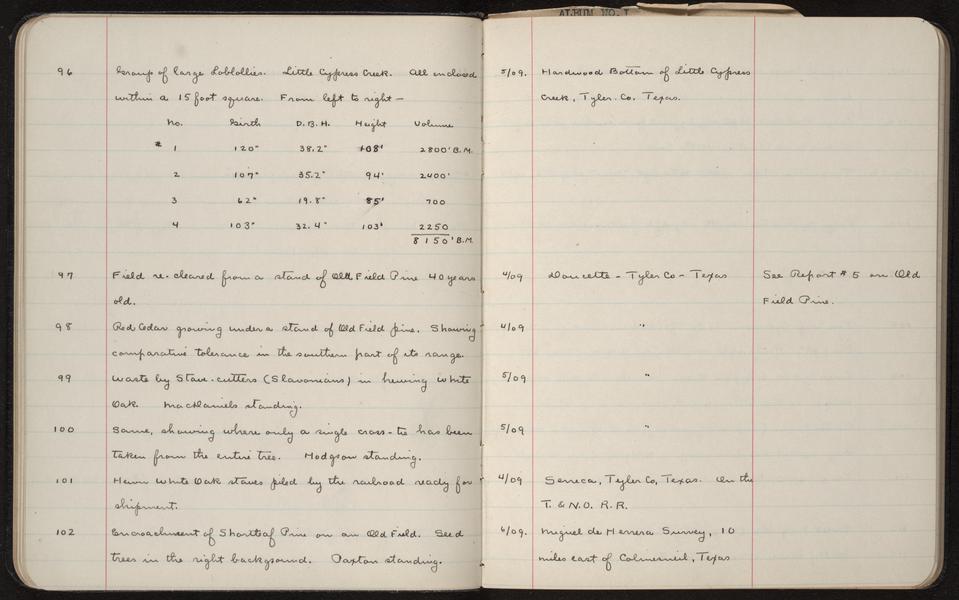 ALBUM NO. 1
96 Group of large Loblollies. Little Cypress Creek. All enclosed
within a 15 foot square. From left to right —
No. Girth D.B.H. Height Volume
# 1 120" 38.2" 108' 2800' B.M.
2 107" 35.2" 94' 2400'
3 62" 19.8" 85' 700
4 103" 32.4" 103' 2250
8150' B.M.
97 Field re-cleared from a stand of Old Field Pine 40 years
old.
98 Red Cedar growing under a stand of Old Field pine. Showing
comparative tolerance in the southern part of its range.
99 Waste by Stave-cutters (Slavonians) in hewing White
Oak. MacDaniels standing.
100 Same, showing where only a single cross-tie has been
taken from the entire tree. Hodgson standing.
101 Hewn White Oak staves piled by the railroad ready for
shipment.
102 Encroachment of Shortleaf Pine on an Old Field. Seed
trees in the right background. Paxton standing.
5/09. Hardwood Bottom of Little Cypress
Creek, Tyler. Co. Texas.
4/09 Doucette - Tyler Co - Texas See Report # 5 on Old
Field Pine.
4/09 "
5/09 "
5/09 "
4/09 Seneca, Tyler Co, Texas. On the
T. & N.O. R.R.
6/09. Miguel de Herrera Survey, 10
miles east of Colmesneil, Texas